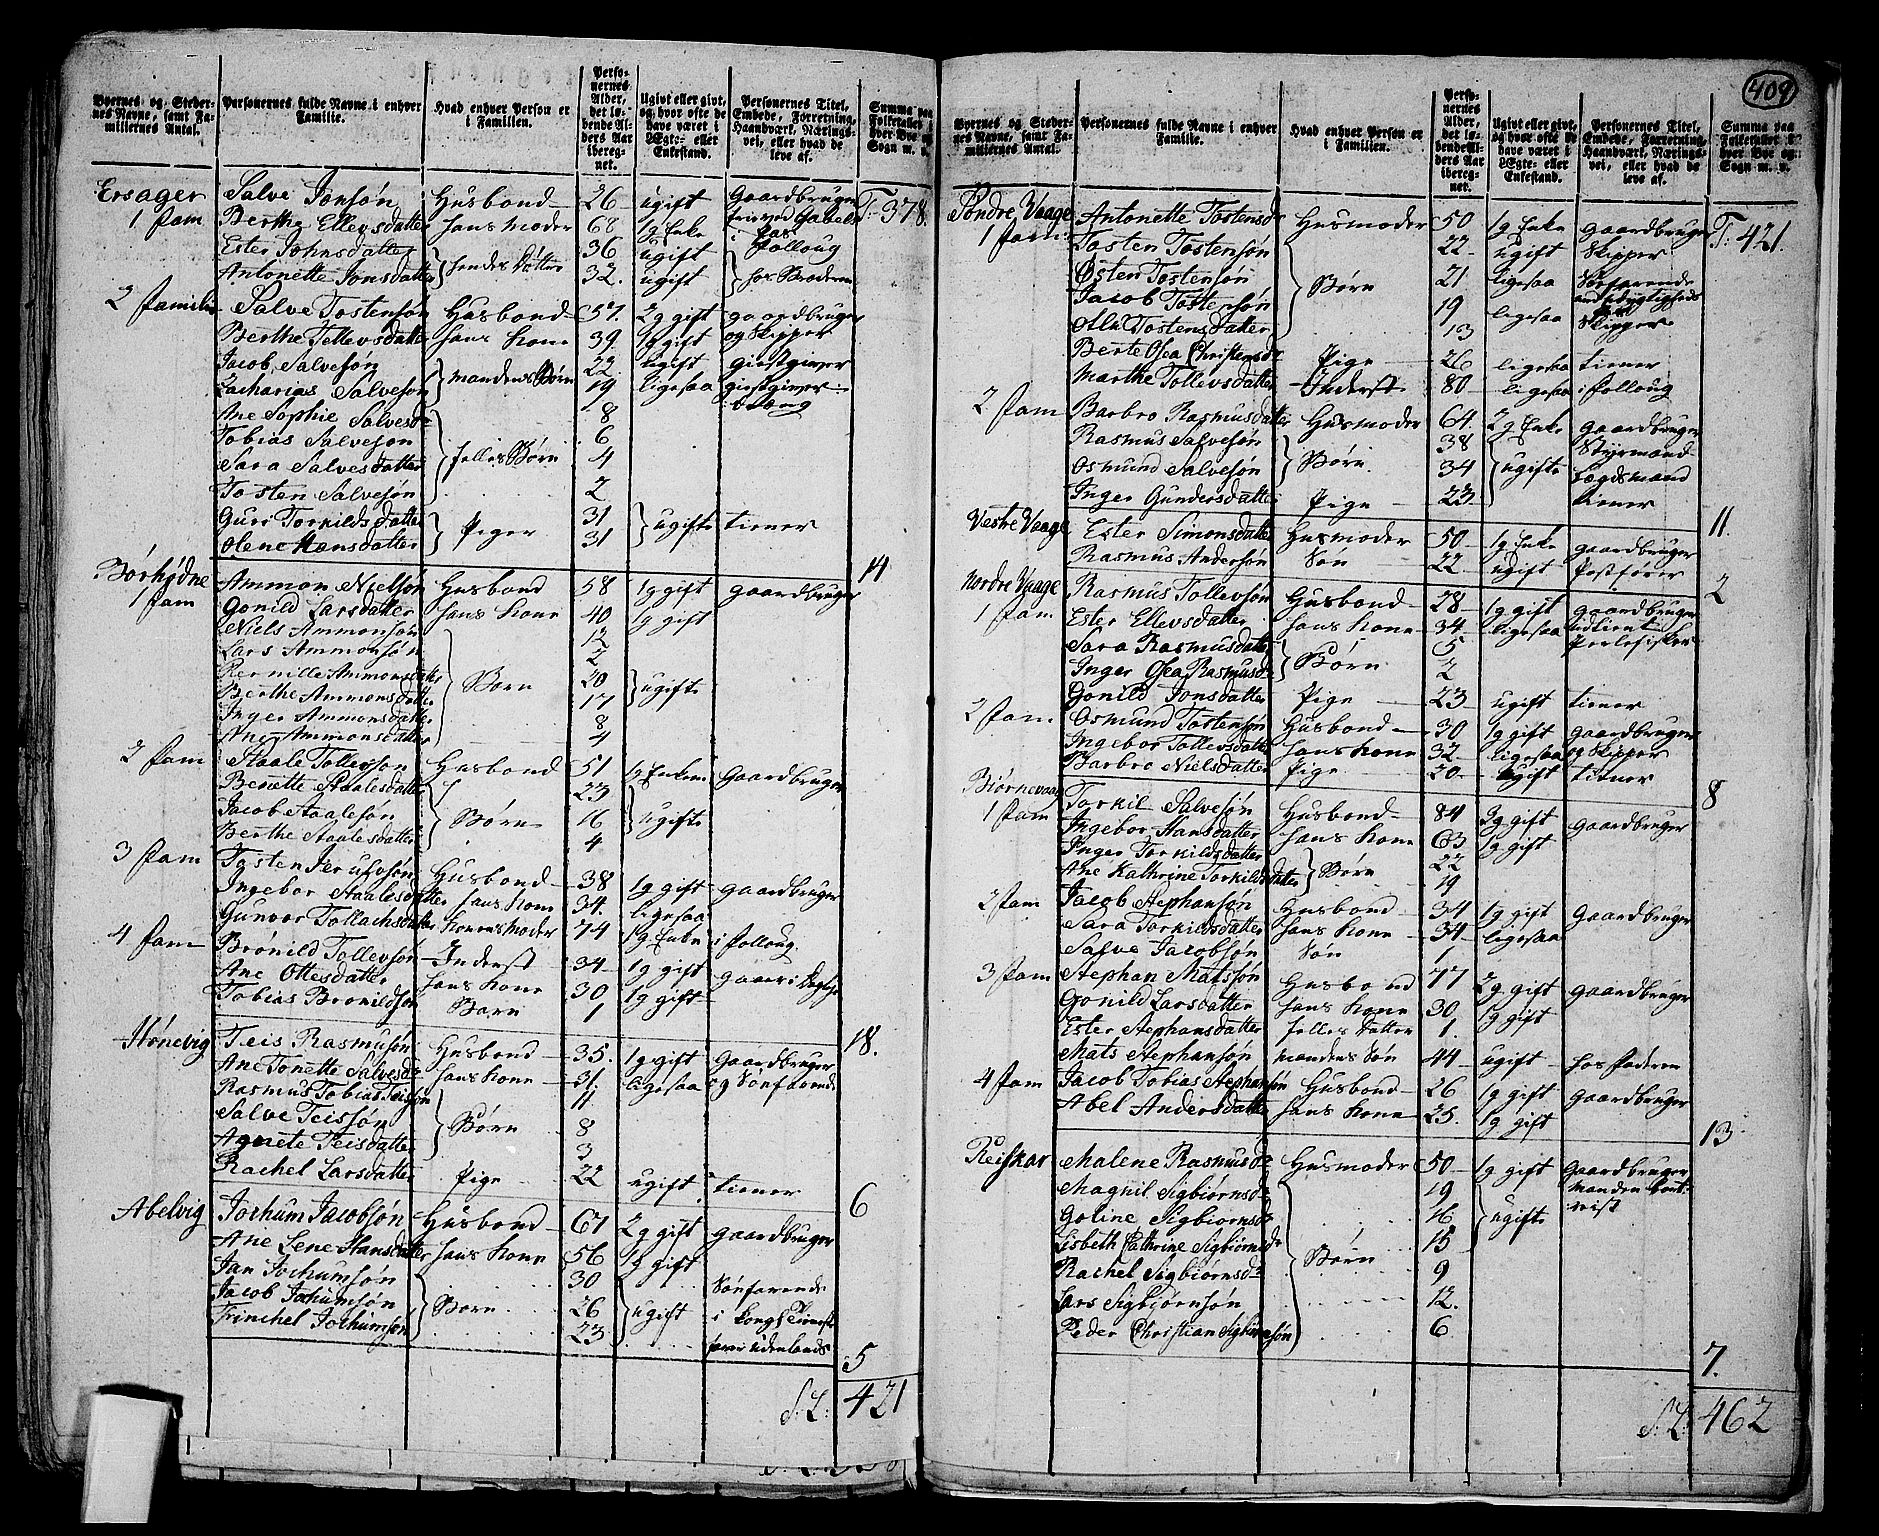 409
Byernes og Steder-
nes Navne, samt Fa-
miliernes Antal.
Personernes fulde Navne i enhver
Familie.
Hvad enhver Person er
i Familien.
Perso-
nernes
Alder,
det lø-
bende Al-
ders Aar
ibereg-
net.
Ugivt eller givt,
og hvor ofte de
have været i
Ægte- eller
Enkestand.
Personernes Titel,
Embede, Forretning,
Haandværk, Nærings-
vei, eller hvad de
leve af.
Summa paa
Folketallet i
hver Bye og
Sogn m. v.
Ersager Salve Jonsøn Husbond 26 ugift Gaardbruger T: 378.
1 fam Berthe Ellevsdatter hans Moder 68 1g Enke
Ester Johnsdatter 36 ugift
Antonette Jonsdatter hendes Døttre 32 ugift hos Broderen
2 familie Salve Tostensøn Husbond 57 2g gift gaardbruger
Berthe Tellevsdatter hans Kone 39 1g gift og Skipper
Jacob Salvesøn 22 ugift giestgiver
Zacharias Salvesøn mandens Børn 19 ligesaa giestgiver
Ane Sophie Salvesdr 8
Tobias Salvesøn 6
Sara Salvesdatter felles Børn 4
Tosten Salvesøn 2
Guro Torkildsdatter 31
Olene Hansdatter Piger 31 ugifte tiener
14
Børhødne Ammon Nielsøn Husbond 58 1g gift gaardbruger
1 fam Gonild Larsdatter hans Kone 40 1g gift
Niels Ammonsøn 12
Lars Ammonsøn 2
Pernille Ammonsdatter 20
Berthe Ammonsdatter Børn 17 ugifte
Inger Ammonsdatter 8
Ane Ammonsdatter 4
2 fam Staale Tollevsøn Husbond 51 1g Enkem gaardbruger
Berette Staalesdatter 23
Jacob Staalesøn Børn 16 ugifte
Berthe Staalesdatter 4
3 fam Tosten Husbond 38 1g gift gaardbruger
Ingebor Staalesdatter hans Kone 34 ligesaa
Gunvor Tollachsdatter Konens Moder 74 1g Enke i folloug
4 fam Brønild Tollevsøn Inderst 34 1g gift
Ane Ottesdatter hans Kone 30 1g gift
Tobias Bronildsøn Barn 1
18.
Hønevig Teis Rasmusøn Husbond 35 1g gift Gaardbruger
Ane Tonette Salvesdr hans Kone 31 ligesaa og Søefarende
Rasmus Tobias Teissøn 11
Salve Teissøn Børn 8
Agnete Teisdatter 3
Rachel Larsdatter Pige 22 ugift tiener
6
Abelvig Jochum Jacobsøn Husbond 67 2g gift gaardbruger
Ane Lene Hansdatter hans Kone 56 1g gift
Jan Jochumsøn 30 Søefarende
Jacob Jochumsøn Børn 26 ugift i Kongl Tieneste
Trinchel Jochumsøn 23 udenlands
5
S: L: 421
Byernes og Steder-
nes Navne, samt Fa-
miliernes Antal.
Personernes fulde Navne i enhver
Familie.
Hvad enhver Person er
i Familien.
Perso-
nernes
Alder,
det lø-
bende Al-
ders Aar
ibereg-
net.
Ugivt eller givt,
og hvor ofte de
have været i
Ægte- eller
Enkestand.
Personernes Titel,
Embede, Forretning,
Haandværk, Nærings-
vei, eller hvad de
leve af.
Summa paa
Folketallet i
hver Bye og
Sogn m. v.
Søndre Vaage Antonette Tostensd Husmoder 50 1g Enke gaardbruger T: 421
1 fam Tosten Tostensøn 22 ugift Skipper
Østen Tostensøn 21 ligesaa
Jacob Tostensøn Børn 19 ligesaa
Tostensdatter 13
Berte Osea Christensdr Pige 26 ligesaa tiener
Marthe Tollevsdatter Inderst 80 ligesaa i folloug
2 fam Barbro Rasmusdatter Husmoder 64 2g Enke gaardbruger
Rasmus Salvesøn 38 Styrmand
Osmund Salvesøn Børn 34 ugifte Lægdsmand
Inger Gundersdatter Pige 23 tiener
11.
Vestre Vaage Ester Simonsdatter Husmoder 50 1g Enke gaardbruger
Rasmus Andersøn Søn 22 ugift Postfører
2
Nordre Vaage Rasmus Tollevsøn Husbond 28 1g gift gaardbruger
1 fam Ester Ellevsdatter hans Kone 34 ligesaa
Sara Rasmusdatter 5
Inger Osea Rasmusdr Børn 2
Gonild Jonsdatter Pige 23 ugift tiener
2 fam Osmund Tostensøn Husbond 30 1g gift gaardbruger
Ingebor Tollevsdatter hans Kone 32 ligesaa og Skipper
Barbro Nielsdatter Pige 20 ugift tiener
8
Biørnevaag Torkil Salvesøn Husbond 84 3g gift gaardbruger
1 fam Ingebor Hansdatter hans Kone 63 1g gift
Inger Torkildsdatter 22
Ane Kathrine Torkildsdatter Børn 19
2 fam Jacob Stephansøn Husbond 34 1g gift gaardbruger
Sara Torkildsdatter hans Kone 34 ligesaa
Salve Jacobsøn Søn 1
3 fam Stephan Matssøn Husbond 77 2g gift gaardbruger
Gonild Larsdatter hans Kone 30 1g gift
Ester Stephansdatter felles datter 1.
Mats Stephansøn mandens Søn 44 ugift hos faderen
4 fam Jacob Tobias Stephansøn Husbond 26 1g gift gaardbruger
Abel Andersdatter hans Kone 25 1g gift
13
Reiskar Malene Rasmusdr Husmoder 50 1g gift Gaardbruger
Magnil Sigbiørnsdr 19 manden bort-
Goline Sigbiørnsdr 16 ugifte reist
Lisbeth Cathrine Sigbiørnsdr 15
Rachel Sigbiørnsdr Børn 9
Lars Sigbiørnsøn 12.
Peder Christian Sigbiørnsøn 6
7.
S: L: 462